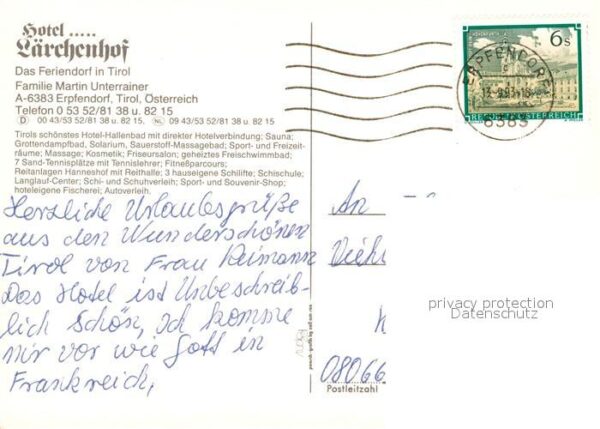 Hotel .....
Lärchenhof
Das Feriendorf in Tirol
Familie Martin Unterrainer
A-6383 Erpfendorf, Tirol, Österreich
Telefon 0 53 52/81 38 u. 82 15
D 00 43/53 52/81 38 u. 82 15. NL 09 43/53 52/81 38 u. 82 15.
Tirols schönstes Hotel-Hallenbad mit direkter Hotelverbindung; Sauna;
Grottendampfbad, Solarium, Sauerstoff-Massagebad; Sport- und Freizeit-
räume; Massage; Kosmetik; Friseursalon; geheiztes Freischwimmbad;
7 Sand-Tennisplätze mit Tennislehrer; Fitneßparcours;
Reitanlagen Hanneshof mit Reithalle; 3 hauseigene Schilifte; Schischule;
Langlauf-Center; Schi- und Schuhverleih; Sport- und Souvenir-Shop;
hoteleigene Fischerei; Autoverleih.
Herzliche Urlaubsgrüße
aus den Wunderschönen
Tirol von Frau Reimann
Das Hotel ist Unbeschreib-
lich schön, Ich komme
mir vor wie Gott in
Frankreich,
6 s
REPUBLIK ÖSTERREICH
ERPFENDORF
6383
An
Vieh
08066
Postleitzahl
privacy protection
Datenschutz